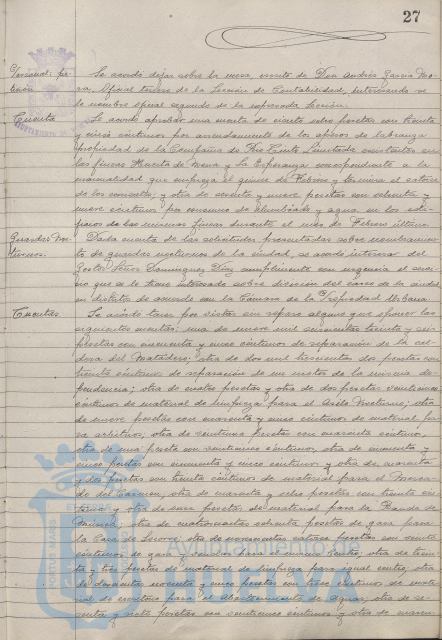 27
Personal: pe-
tición
Se acordó dejar sobre la mesa, escrito de Don Andrés García Mo-
ra, Oficial tercero de la Sección de Contabilidad, interesando se
le nombre oficial segundo de la expresada Sección.
Cuenta
Se acordó aprobar una cuenta de ciento ocho pesetas con treinta
y cinco céntimos por arrendamiento de los aperos de labranza
propiedad de la Compañía de Rio Tinto Limitada existentes en
las fincas Huerta de Mena y la Esperanza correspondiente a la
mensualidad que empieza el quince de Febrero y termina el catorce
de los corrientes; y otra de sesenta y nueve pesetas con setenta y
nueve céntimos por consumo de alumbrado y agua en los edi-
ficios de las mismas fincas durante el mes de Febrero último.
Guardas Noc-
turnos.
Dada cuenta de las solicitudes presentadas sobre nombramien-
to de guardas nocturnos de la ciudad, se acordó interesar del
Gestor Señor Dominguez Díaz cumplimente con urgencia el servi-
cio que se le tiene interesado sobre división del casco de la ciudad
en distritos de acuerdo con la Cámara de la Propiedad Urbana.
Cuentas
Se acordó tener por vistas sin reparo alguno que oponer las
siguientes cuentas: una de nueve mil seiscientas treinta y seis
pesetas con cincuenta y cinco céntimos de reparación de la cal-
dera del Matadero; otra de dos mil trescientas dos pesetas con
treinta céntimos de reparación de un motor de la misma de-
pendencia; otra de cuatro pesetas y otra de dos pesetas veinticinco
céntimos de material de limpieza para el Asilo Nocturno; otra
de nueve pesetas con cuarenta y cinco céntimos de material pa-
ra arbitrios; otra de veintiuna pesetas con cuarenta céntimos,
otra de una peseta con veinticinco céntimos, otra de cincuenta y
cinco pesetas con cincuenta y cinco céntimos y otra de cuarenta
y dos pesetas con treinta céntimos de material para el Merca-
do del Carmen; otra de cuarenta y ocho pesetas con treinta cén-
timos y otra de once pesetas de material para la Banda de
Música; otra de cuatrocientas setenta pesetas de gasa para
la Casa de Socorro, otra de novecientas catorce pesetas con veinte
céntimos de gasa y vendas para el mismo Centro; otra de trein-
ta y tres pesetas de material de limpieza para igual centro; otra
de doscientas noventa y cinco pesetas con trece céntimos de mate-
rial de escritorio para el Abastecimiento de Aguas; otra de se-
senta y siete pesetas con veinticinco céntimos y otra de cuaren-